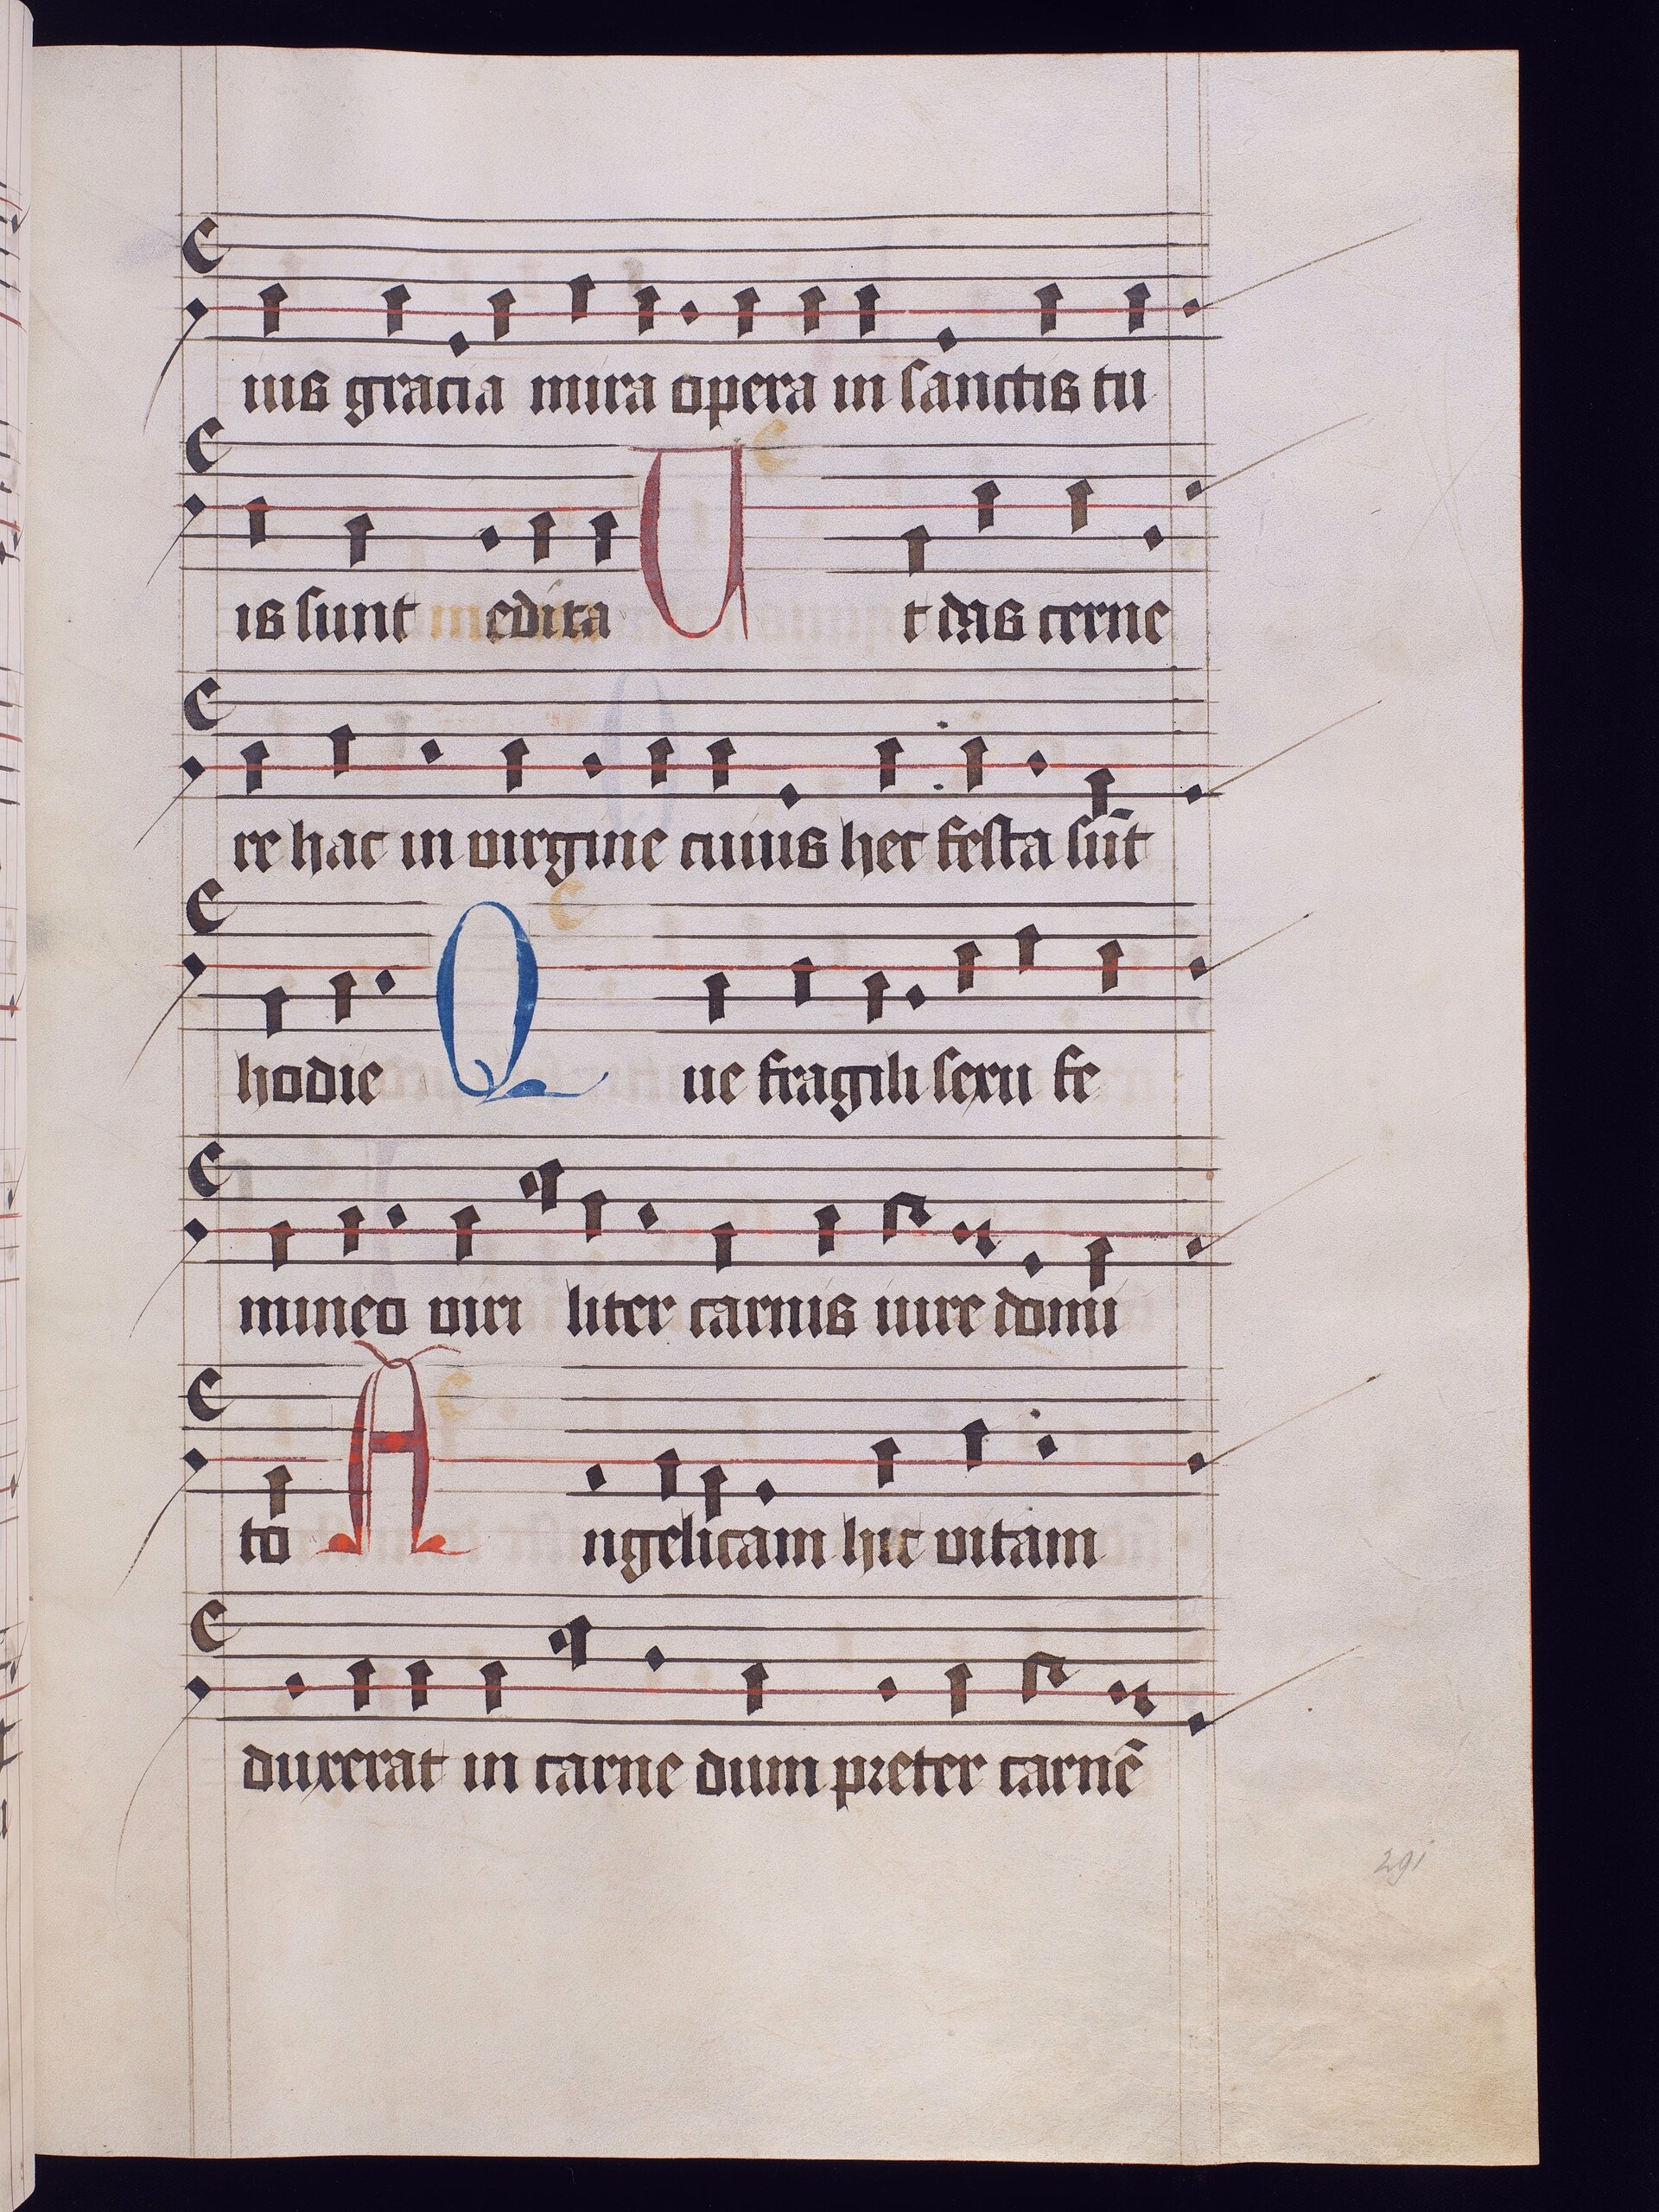 iius gracia mira opera in sanctis tu
is sunt edita U t das cerne
re hac in virgine cuius hec festa sūt
hodie Q ue fragili sexu fe
mineo viri liter carnis iure domi
to A ngelicam hic vitam
duxerat in carne dum preter carnē
291